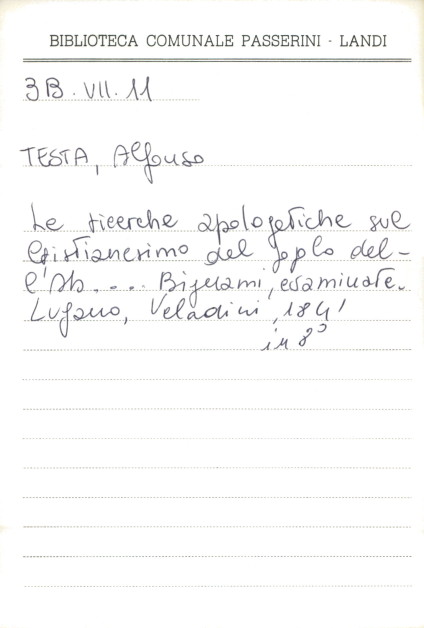 BIBLIOTECA COMUNALE PASSERINI - LANDI
3B. VII. 11
TESTA, Alfonso
Le ricerche apologetiche sul
Cristianesimo del del-
l'Ab. ... Bignami, esaminate.
Lugano, Veladini, 1841
in 8°